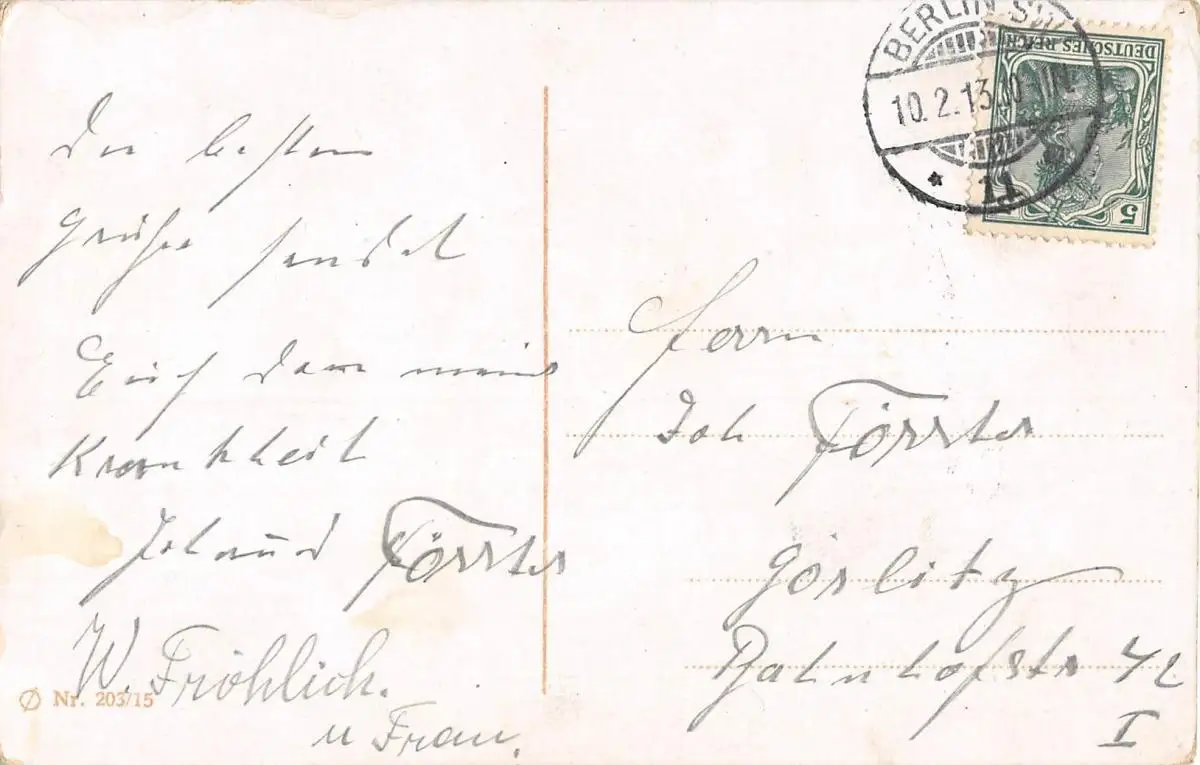 Die besten
Grüße sendet
Euch
Krankheit
Förster
W. Fröhlich.
u Frau.
Nr. 203/15
BERLIN SW
10.2.13
* 11
DEUTSCHES REICH
5
Herrn
Joh Förster
Görlitz
Bahnhofstr 42
I